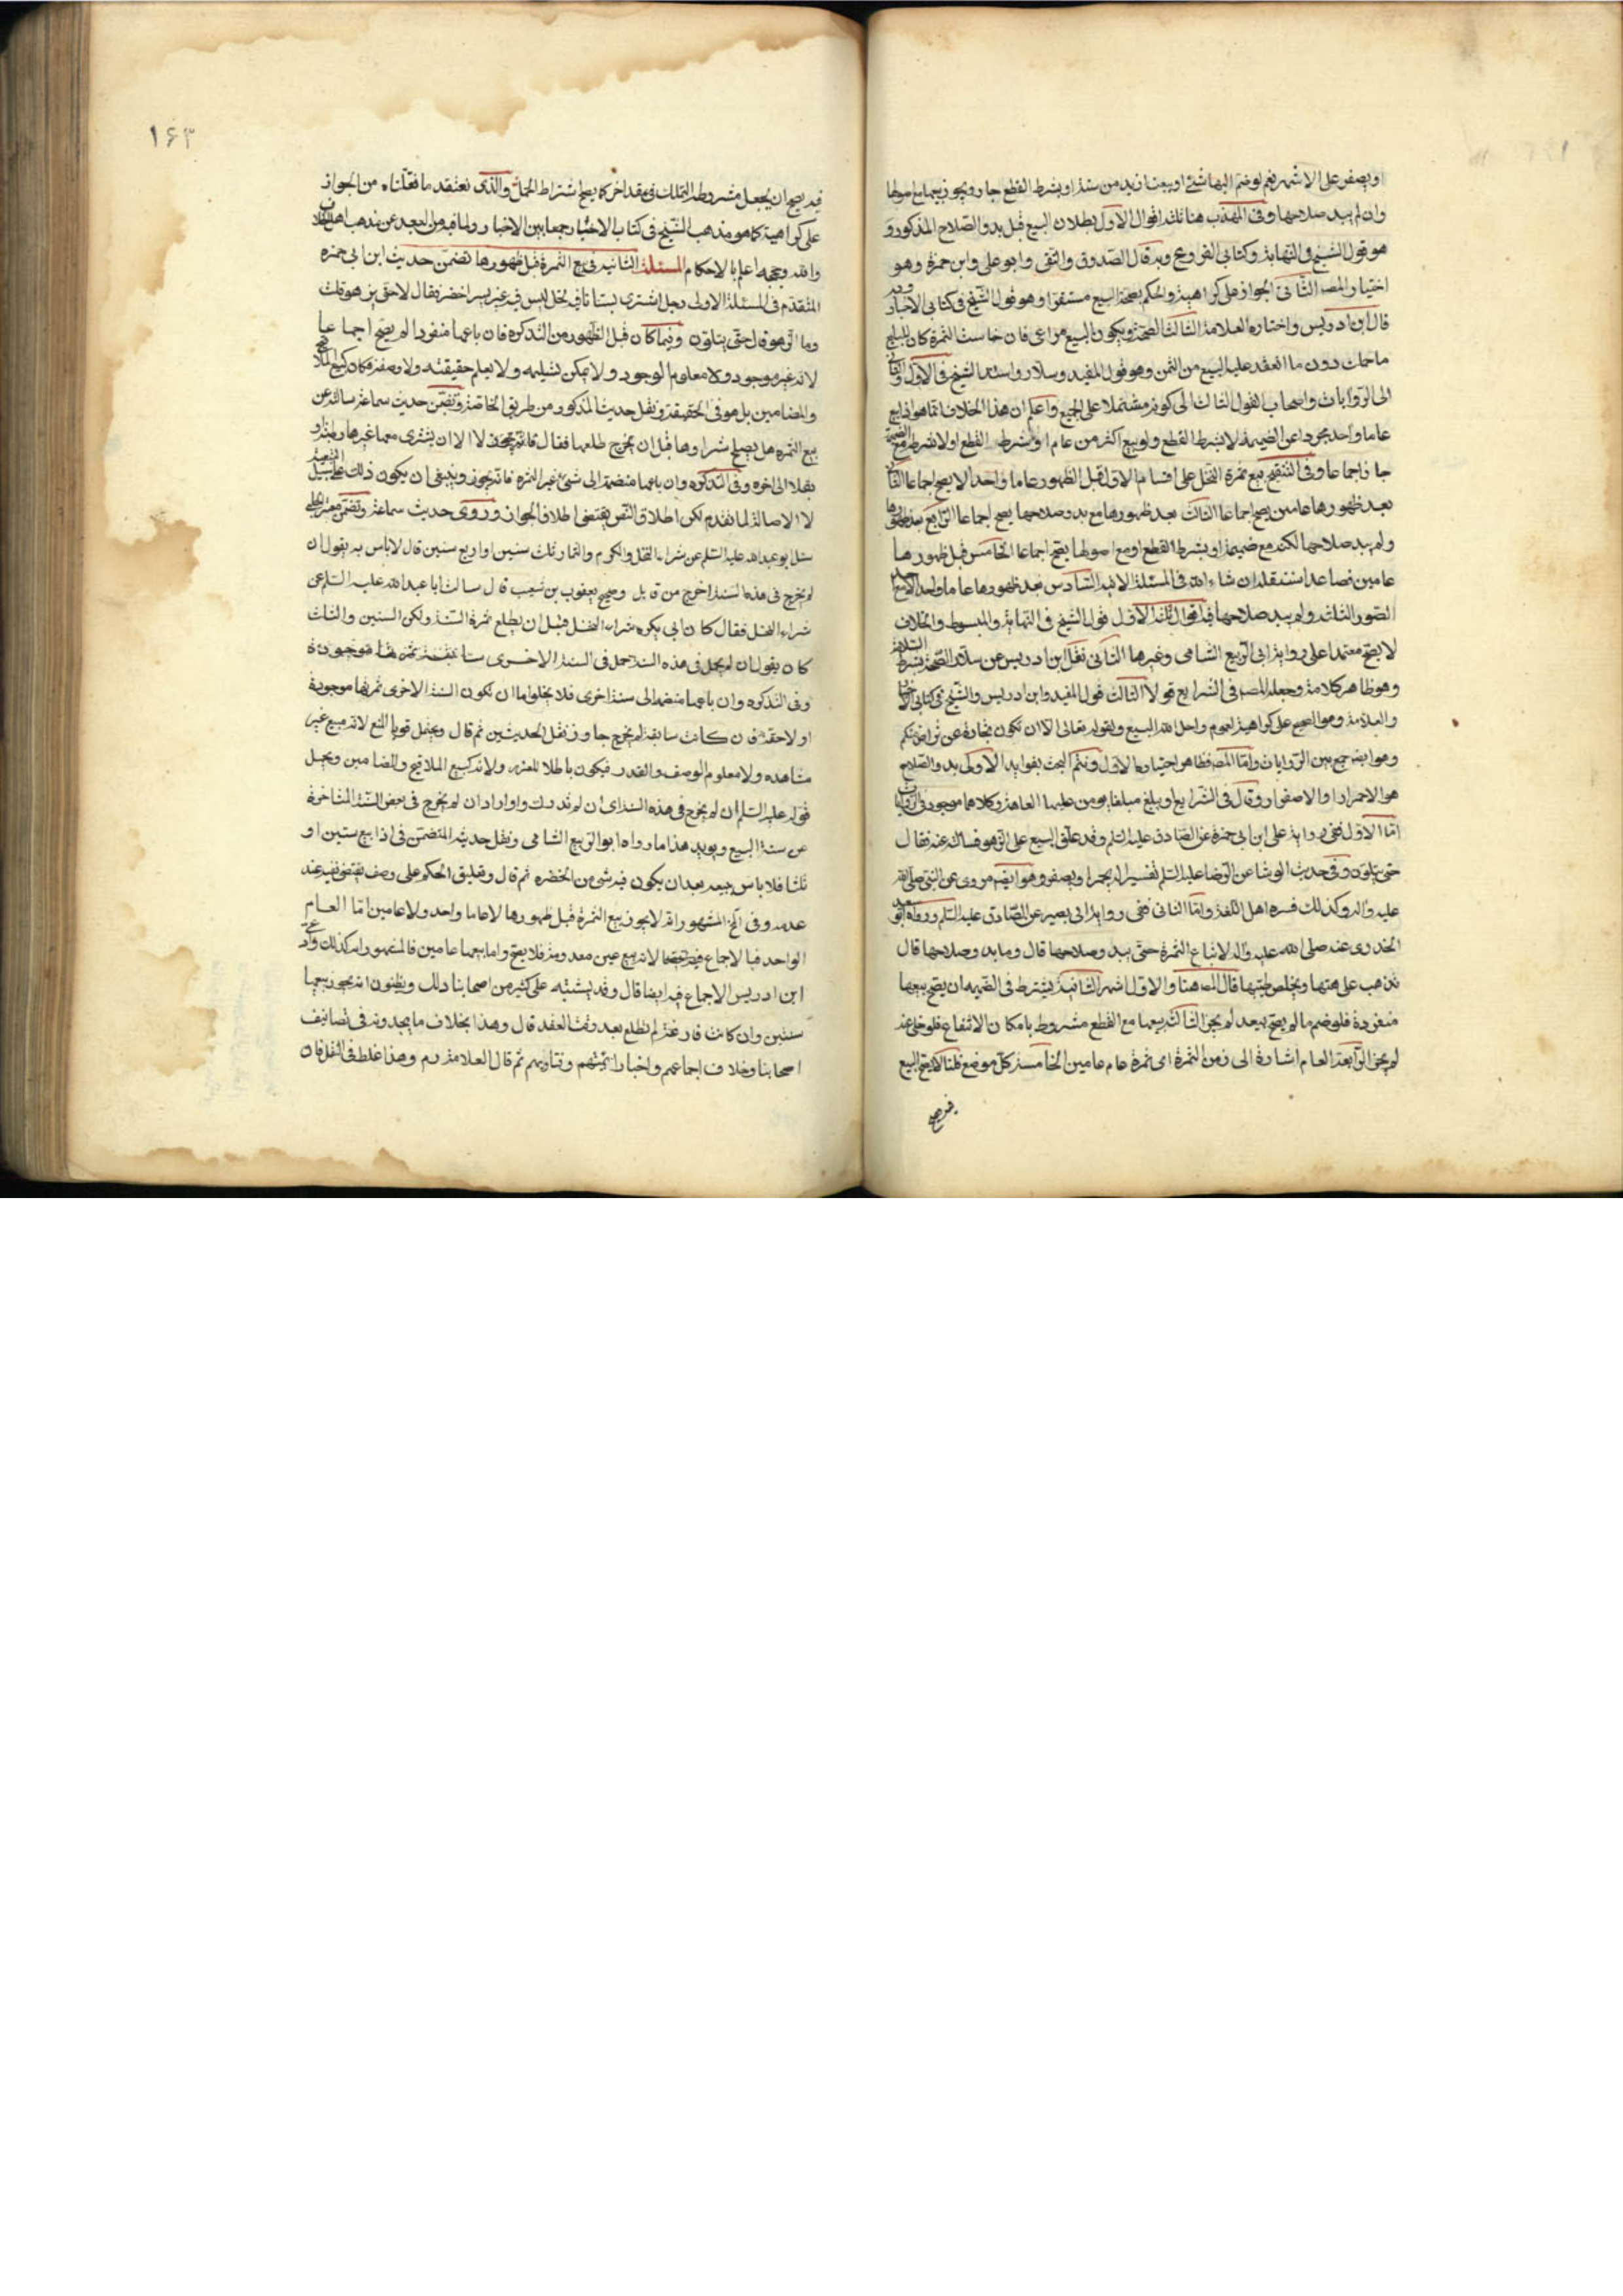 او يصفر على الاشهر نعم لو ضم اليها شئ او بيعنا زيد من سنة او بشرط القطع جاز ويجوز بيعها مع اصولها
وان لم يبد صلاحها وفى المهذب هنا ثلثة اقوال الاول بطلان البيع قبل بدو الصلاح المذكور و
هو قول الشيخ فى النهاية وكتابى الفروع وبه قال الصدوق والتقى وابو على وابن حمزة وهو
اختيار المصـ الثانى الجواز على كراهية والحكم بصحة البيع مستقرا وهو قول الشيخ فى كتابى الاخبار وبه
قال ابن ادريس واختاره العلامة الثالث الصحة ويكون البيع مراعى فان خاست الثمرة كان للبايع
ما حملت دون ما انعقد عليه البيع من الثمن وهو قول المفيد وسلار واستند الشيخ فى الاول والثانى
الى الروايات واصحاب القول الثالث الى كونه مشتملا على الجمع واعلم ان هذا الخلاف انما هو اذا بيع
عاما واحد مجردا عن الضميمة لا بشرط القطع ولو بيع اكثر من عام او بشرط القطع او لا بشرط مع الضميمة
جاز اجماعا وفى التنقيح بيع ثمرة النخل على اقسام الاول قبل الظهور عاما واحدا لا يصح اجماعا الثانى
بعد ظهورها عامين يصح اجماعا الثالث بعد ظهورها مع بدو صلاحها يصح اجماعا الرابع بعد ظهورها
ولم يبد صلاحها لكنه مع ضميمة او بشرط القطع او مع اصولها يصح اجماعا الخامس قبل ظهورها
عامين فصاعدا سننقله ان شاء الله فى المسئلة الاتية السادس بعد ظهورها عاما واحدا لا مع احد
الصور الثلث ولم يبد صلاحها فيه اقوال ثلثة الاول قول الشيخ فى النهاية والمبسوط والخلاف
لا يصح معتمدا على رواية ابى الربيع الشامى وغيرها الثانى نقل ابن ادريس عن سلار الصحة بشرط السلامة
وهو ظاهر كلامه وجعله المصـ فى الشرايع قولا الثالث قول المفيد وابن ادريس والشيخ فى كتابى الاخبار
والعلامة وهو الصحيح على كراهية لعموم واحل الله البيع ولقوله تعالى الا ان تكون تجارة عن تراض منكم
وهو ايضا جمع بين الروايات واما المصـ فظاهر اختياره الاول ونتم البحث بفوايد الاولى بدو الصلاح
هو الاحمرار او الاصفرار وقال فى الشرايع او يبلغ مبلغا يؤمن عليها العاهة وكلاهما موجود فى الروايات
اما الاول ففى رواية على ابن ابى حمزة عن الصادق عليه السلم وقد علق البيع على الزهو فساله عنه فقال
حتى يتلون وفى حديث الوشا عن الرضا عليه السلم تفسيره ان يحمرا ويصفر وهو ايضا مروى عن النبى صلى الله
عليه واله وكذلك فسره اهل اللغة واما الثانى ففى رواية ابى بصير عن الصادق عليه السلم ورواه ابو سعيد
الخدرى عنه صلى الله عليه واله لا تباع الثمرة حتى يبدو صلاحها قال وما بدو صلاحها قال
تذهب عاهتها ويخلص طيبها قال المصـ هنا والاول اشهر الثانية يشترط فى الضميمة ان يصح بيعها
منفردة فلو ضم ما لم يصح بيعه لم يجز الثالثة بيعها مع القطع مشروط بامكان الانتفاع فلو خلى عنه
لم يجز الرابعة العام اشارة الى زمن الثمرة اى ثمرة عام عامين الخامسة كل موضع قلنا لا يصح البيع
فيه يصح
١۶۳
فيه يصح ان يجعل مشروطه التملك فى عقد اخر كما يصح اشتراط الحمل والذى نعتقد ما نقلناه من الجواز
على كراهية كما هو مذهب الشيخ فى كتاب الاخبار جمعا بين الاخبار ولما فيه من البعد عن مذهب اهل الخلاف
والله وحججه اعلم بالاحكام المسئلة الثانية فى بيع الثمرة قبل ظهورها تضمن حديث ابن ابى حمزه
المتقدم فى المسئلة الاولى رجل اشترى بستانا فيه نخل ليس فيه غير بسر اخضر فقال لا حتى يزهو قلت
وما الزهو قال حتى يتلون وفيما كان قبل الظهور من التذكره فان باعها منفردا لم يصح اجماعا
لانه غير موجود ولا معلوم الوجود ولا يمكن تسليمه ولا يعلم حقيقته ولا وصفه فكان كبيع الملاقيح
والمضامين بل هو فى الحقيقة ونقل حديث المذكور من طريق الخاصة وتضمن حديث سماعة سالته عن
بيع الثمرة هل يصلح شراؤها قبل ان يخرج طلعها فقال لا الا ان يشترى معها غيرها رطبة او
بقلا الى اخره وفى التذكره وان باعها منضمة الى شئ غير الثمرة فانه يجوز وينبغى ان يكون ذلك على سبيل التبعية
لا الاصالة لما تقدم لكن اطلاق النص يقتضى اطلاق الجواز وروى حديث سماعة وتضمن صحيح الحلبى
سئل ابو عبد الله عليه السلم عن شراء النخل والكرم والثمار ثلث سنين او اربع سنين قال لا باس به يقول ان
لم يخرج فى هذه السنة اخرج من قابل وصحيح يعقوب بن شعيب قال سالت ابا عبد الله عليه السلم عن
شراء النخل فقال كان ابى يكره شراء النخل قبل ان يطلع ثمرة السنة ولكن السنين والثلث
كان يقول ان لم يحمل فى هذه السنة حمل فى السنة الاخرى
وفى التذكره وان باعها منضمة الى سنة اخرى فلا يخلو اما ان تكون السنة الاخرى ثمرتها موجودة
او لاحقة فان كانت سابقة لم يخرج جاز ونقل الحديثين ثم قال ويحتمل قويا المنع لانه مبيع غير
مشاهده ولا معلوم الوصف والقدر فيكون باطلا للغرر ولانه كبيع الملاقيح والمضامين ويحمل
قوله عليه السلم ان لم يخرج فى هذه السنة اى ان لم تدرك او اراد ان لم يخرج فى بعض السنة المتاخرة
عن سنة البيع ويويد هذا ما رواه ابو الربيع الشامى ونقل حديثه المتضمن فى اذا بيع سنتين او
ثلثا فلا باس ببيعه بعد ان يكون فيه شئ من الخضره ثم قال وتعليق الحكم على وصف يقتضى نفيه عند
عدمه وفى الخ المشهور انه لا يجوز بيع الثمرة قبل ظهورها لا عاما واحد ولا عامين اما العام
الواحد فبالاجماع لانه بيع عين معدومة فلا يصح واما بيعها عامين فالمشهور انه كذلك وادعى
ابن ادريس الاجماع فيه ايضا قال وقد يشتبه على كثير من اصحابنا ذلك ويظنون انه يجوز بيعها
سنتين وان كانت فارغة لم تطلع بعد وقت العقد قال وهذا بخلاف ما يجدونه فى تصانيف
اصحابنا وخلاف اجماعهم واخبار ائمتهم وفتاويهم ثم قال العلامة ره وهذا غلط فى النقل فان